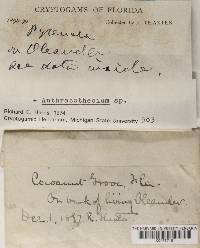 CRYPTOGAMS OF FLORIDA
Collected by R. THAXTER
Pyrenula
on Oleander
see data inside.
Anthracothecium sp.
Richard C. Harris, 1974
Cryptogamic Herbarium, Michigan State University 503
Cocoanut Grove, Fla.
On bark of living Oleander.
Dec. 1, 1897 R. Thaxter